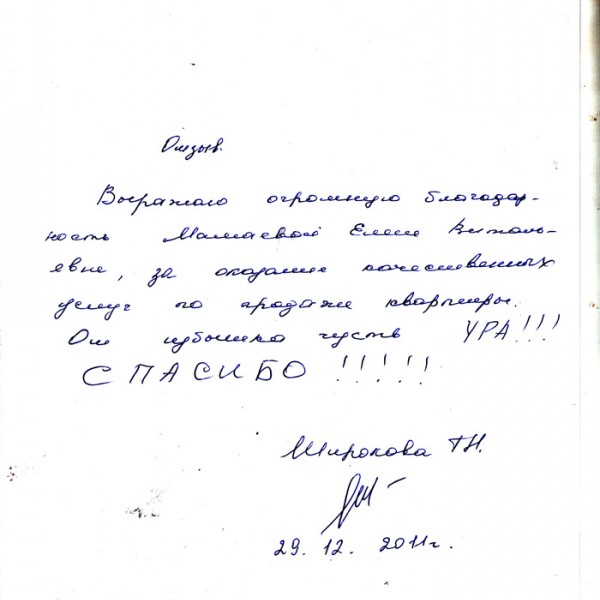 Отзыв.
Выражаю огромную благодар-
ность Мамаевой Елене Виталь-
евне, за оказание качественных
услуг по продаже квартиры.
От избытка чуств УРА!!!
СПАСИБО !!!!!
Широкова Т.Н.
29.12. 2011г.